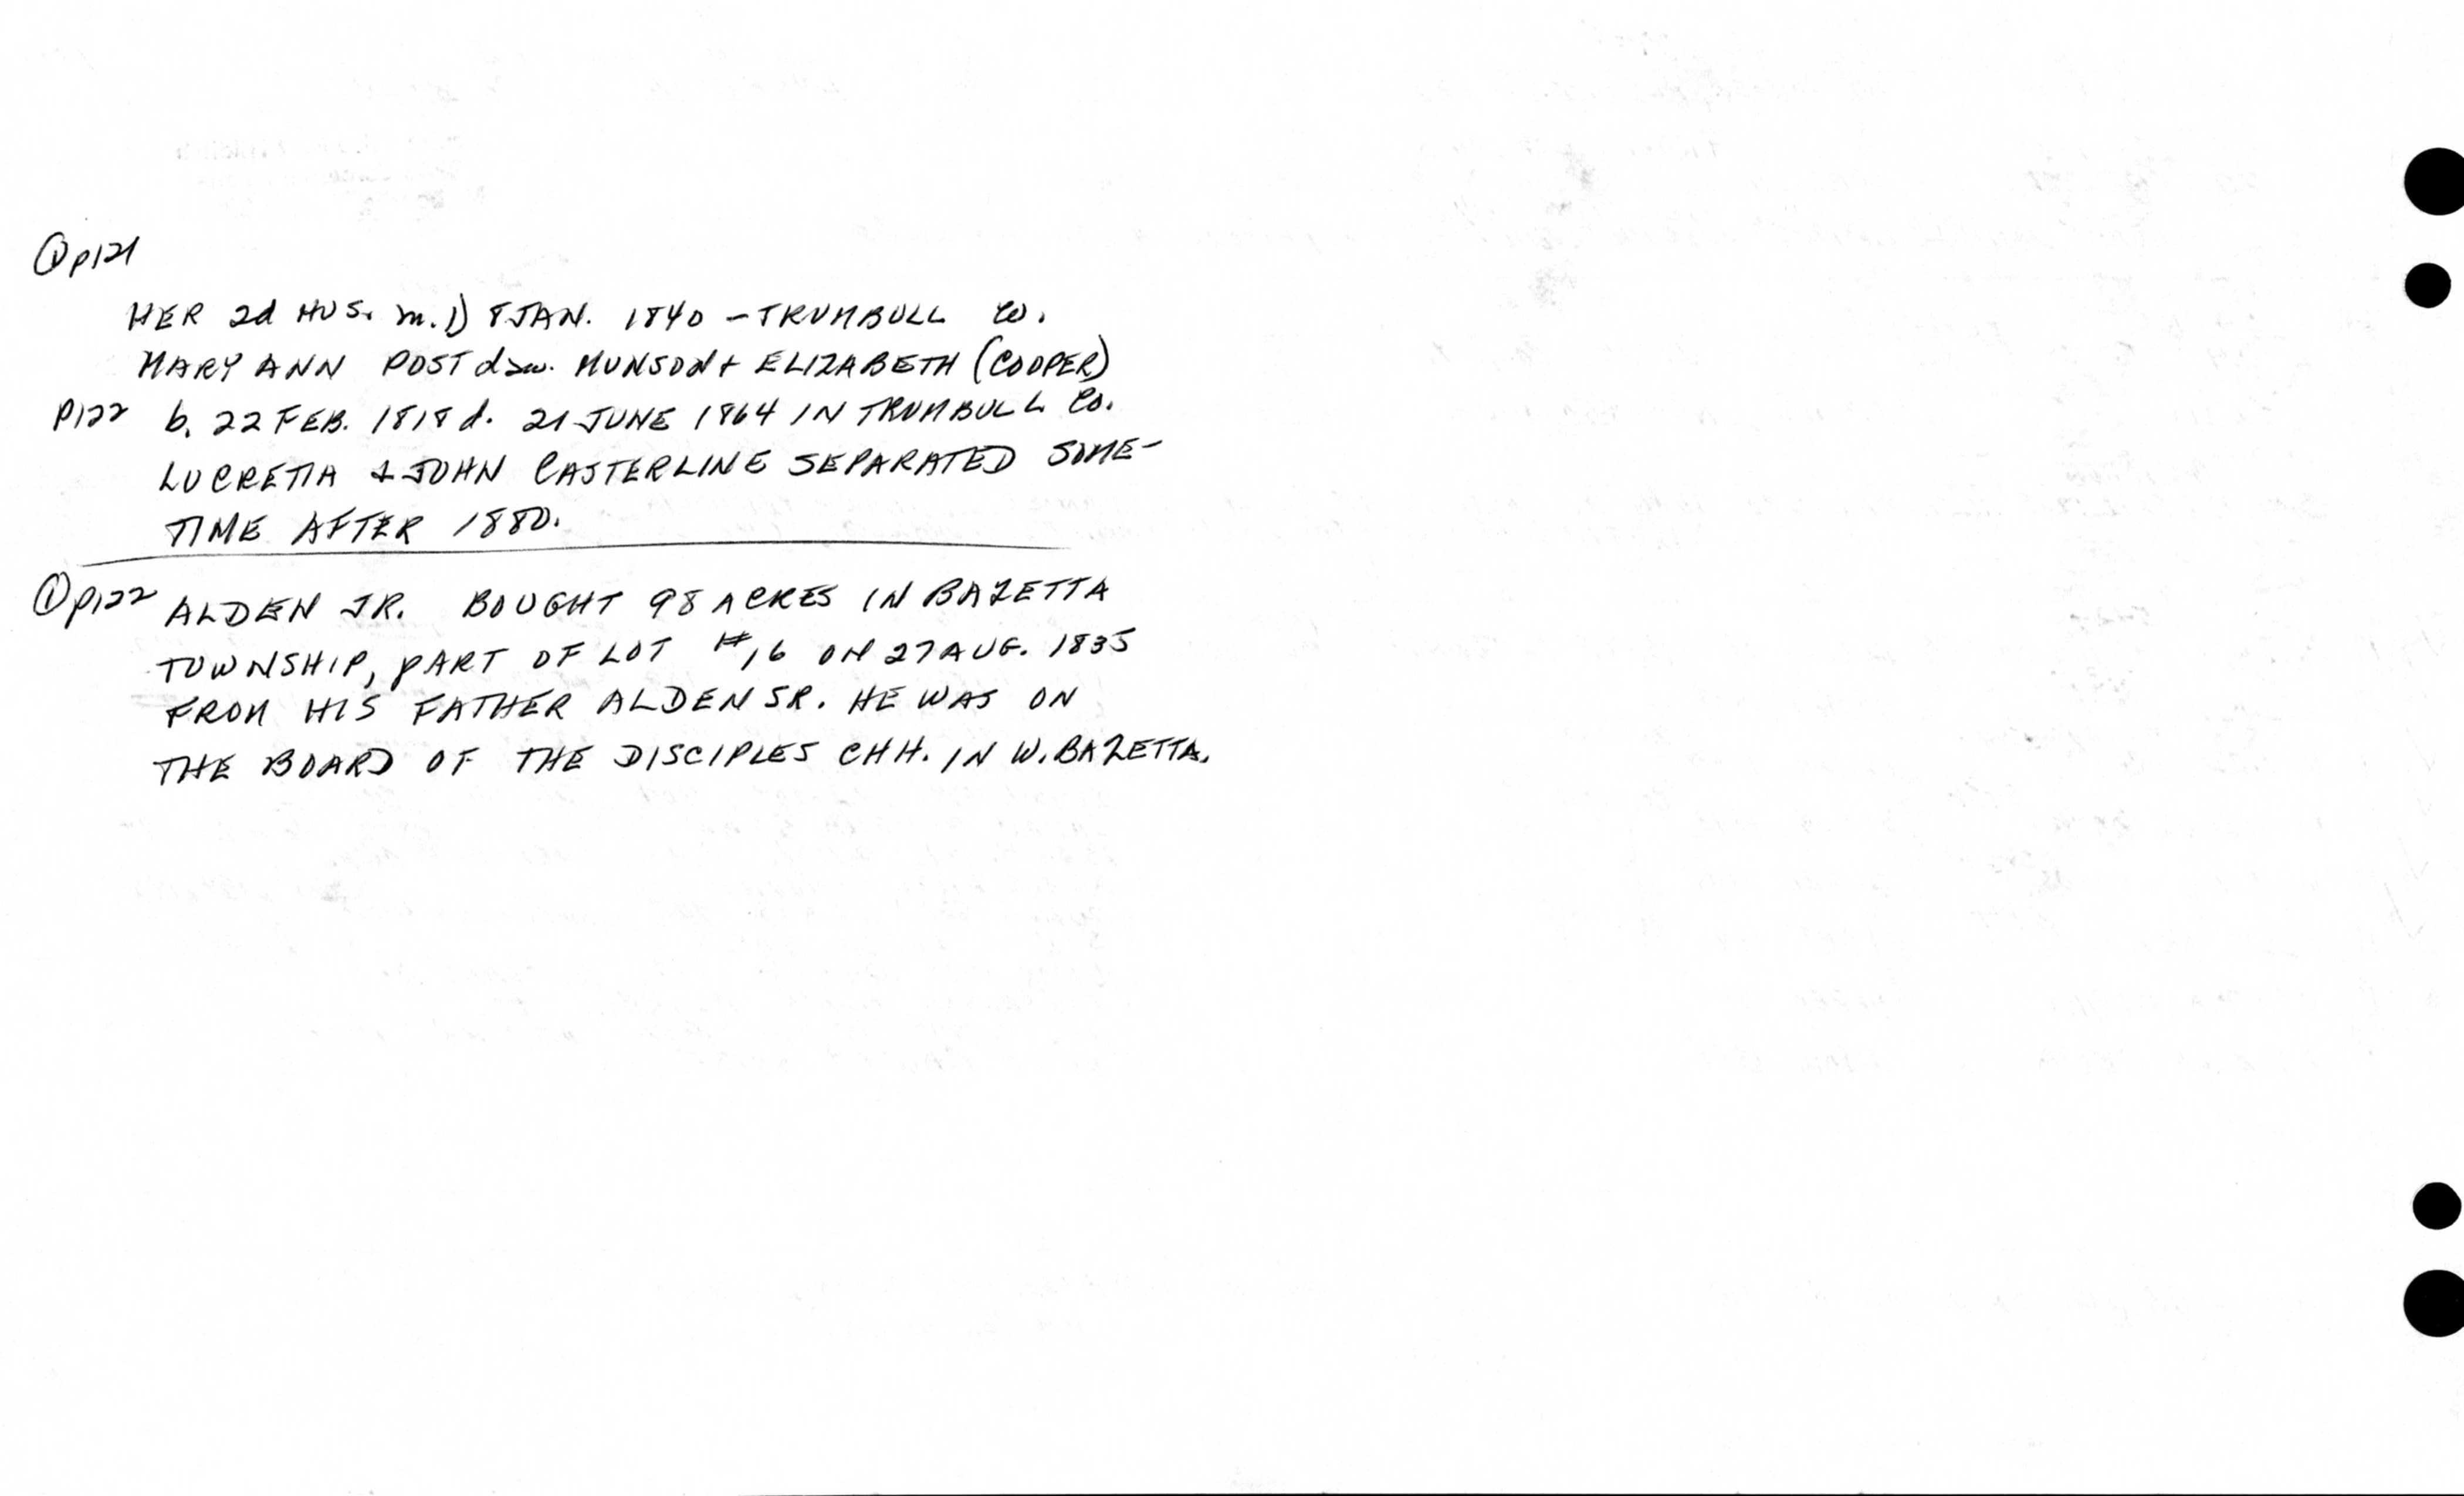 ① p121
HER 2d HUS. m. 1) 8 JAN. 1840 - TRUMBULL Co.
MARY ANN POST dau. MUNSON + ELIZABETH (COOPER)
P122 b. 22 FEB. 1818 d. 21 JUNE 1864 IN TRUMBULL Co.
LUCRETIA & JOHN CASTERLINE SEPARATED SOME-
TIME AFTER 1880.
① p122 ALDEN JR. BOUGHT 98 ACRES IN BAZETTA
TOWNSHIP, PART OF LOT #16 ON 27 AUG. 1835
FROM HIS FATHER ALDEN SR. HE WAS ON
THE BOARD OF THE DISCIPLES CHH. IN W. BAZETTA.